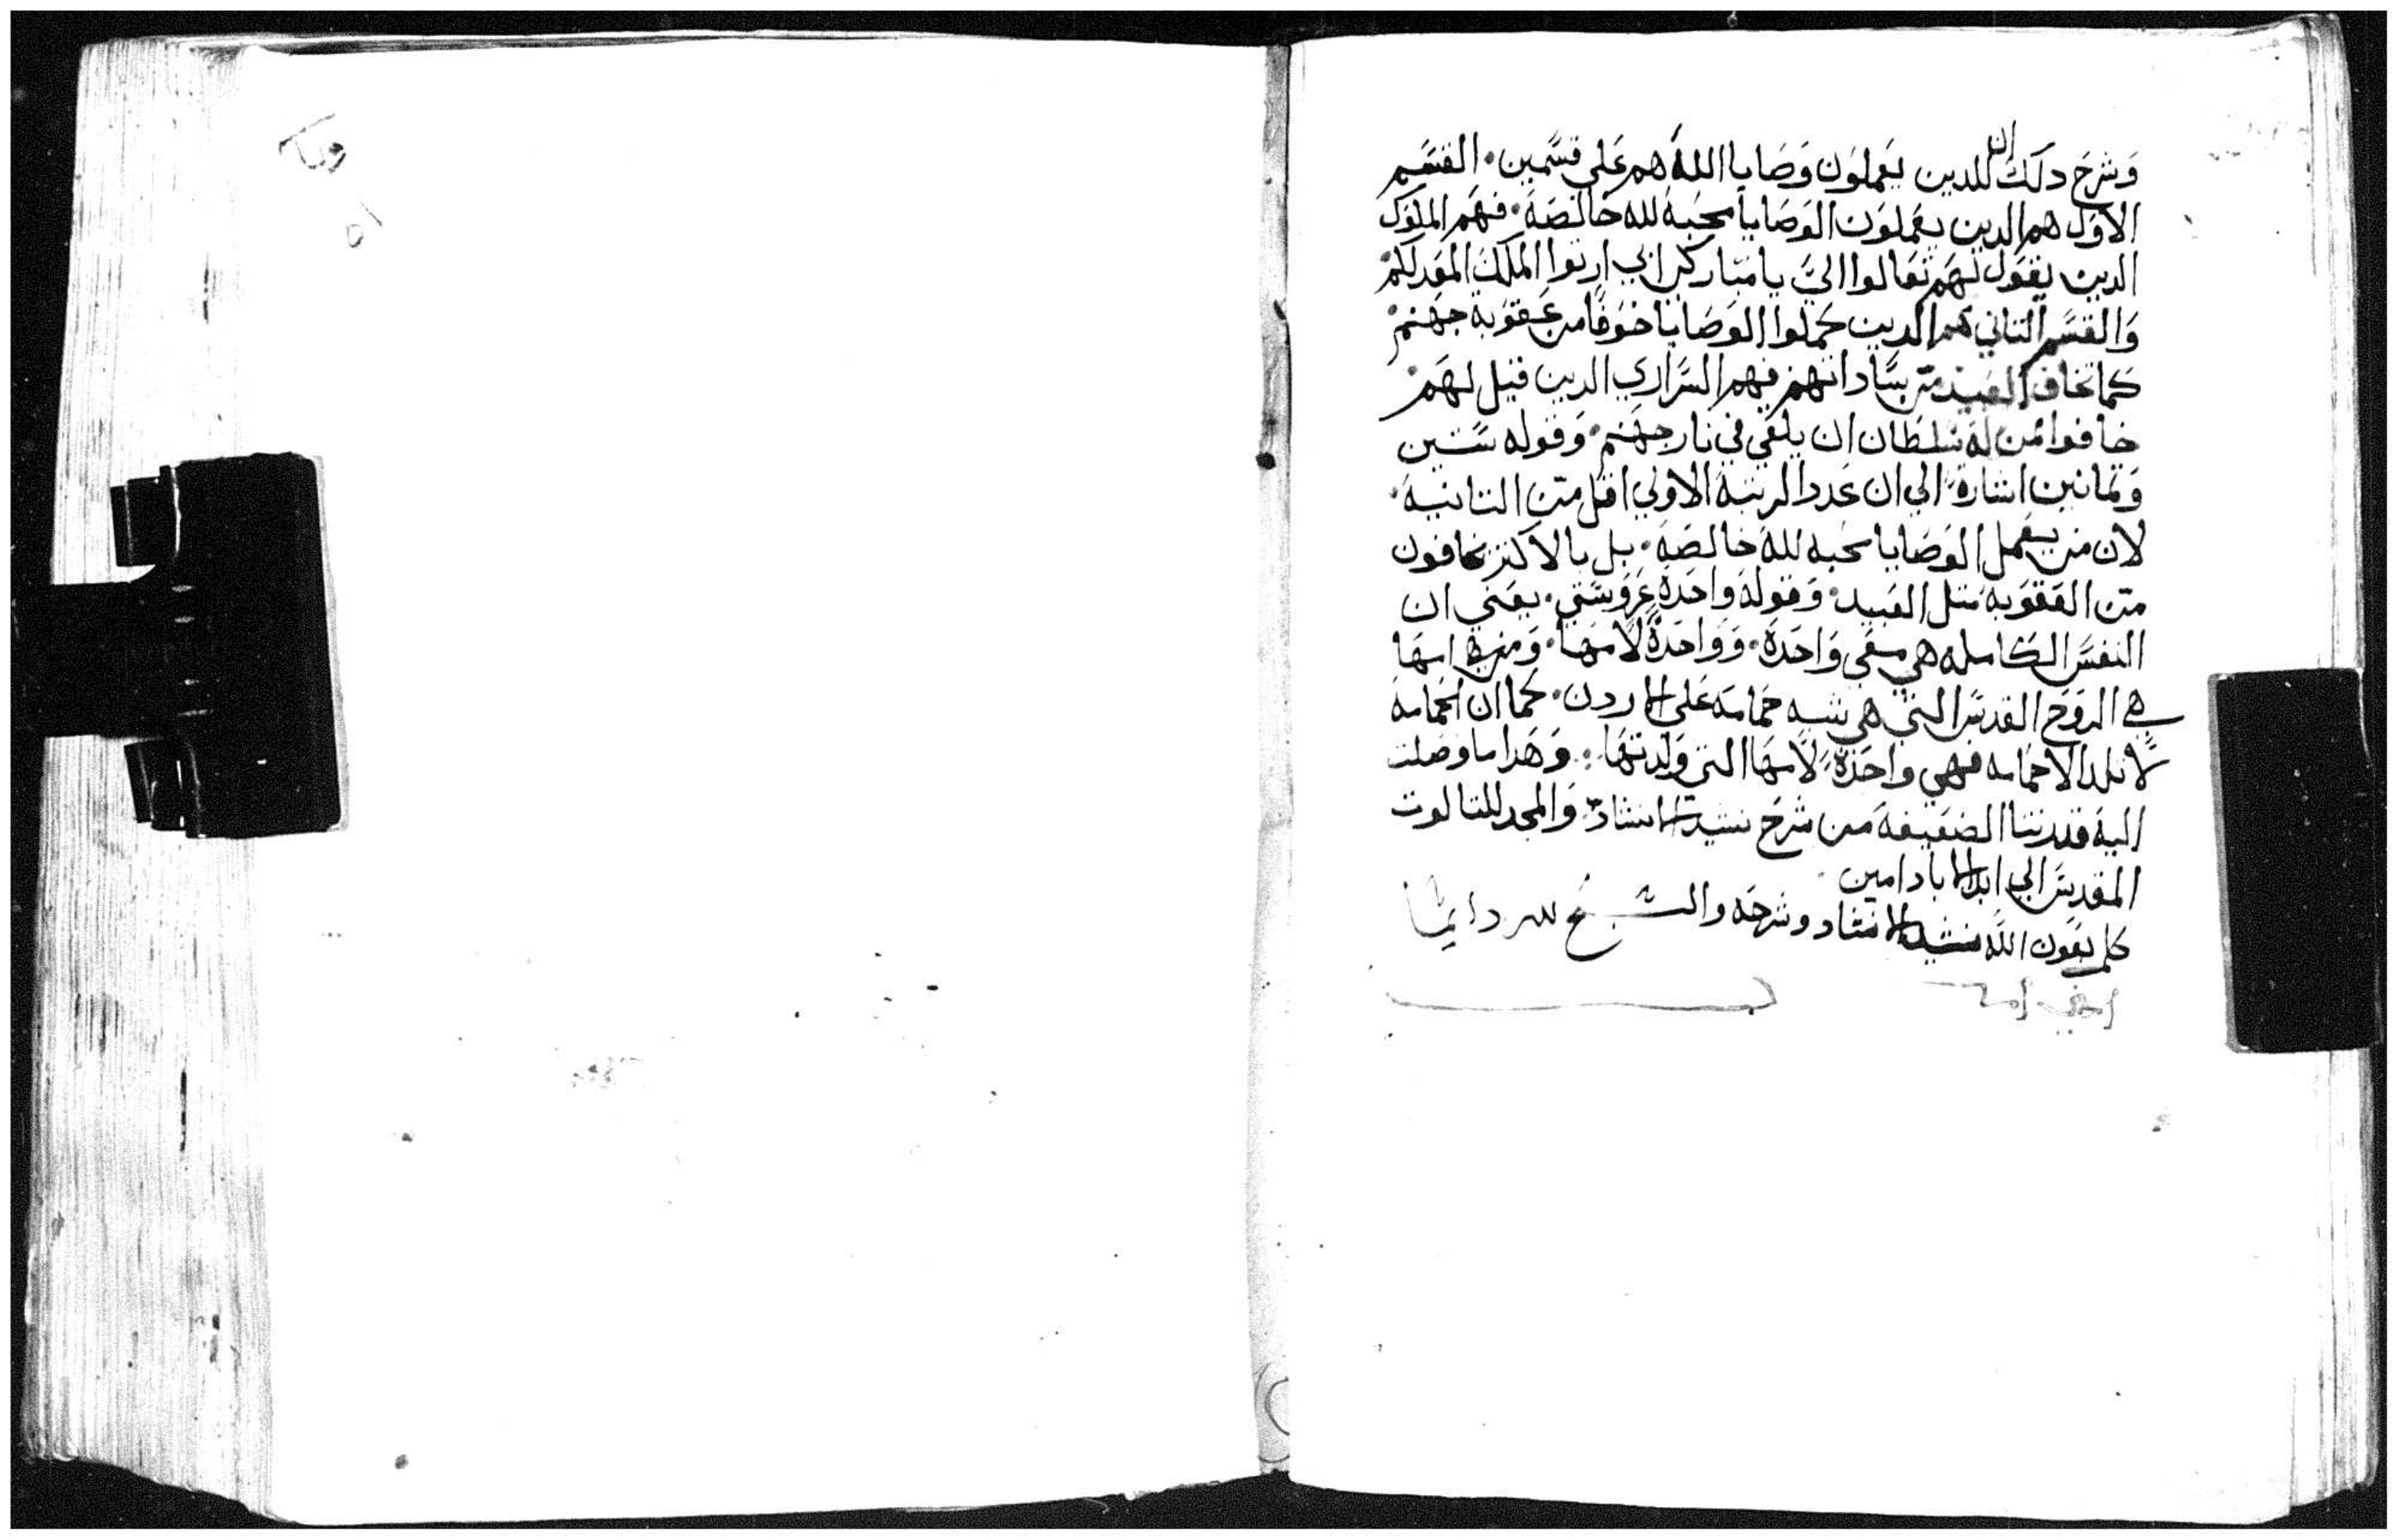 وشرح دلك ان اللدين يعملون وصايا الله هم على قسمين. القسم
الاول هم الدين يعملون الوصايا محبه لله خالصة. فهم الملوك
الدين يقول لهم تعالوا الي يا مباركي ابي ارتوا الملك المعد لكم
والقسم التاني هم الدين كملوا الوصايا خوفا من عقوبة جهنم
كما تخاف العبيد من ساداتهم فهم السراري الدين قيل لهم
خافوا من له سلطان ان يلقي في نار جهنم. وقوله ستين
وتمانين اشارة الي ان عدد الرتبة الاولي اقل من التانية.
لان من يعمل الوصايا محبه لله خالصه. بل بالاكتر يخافون
من العقوبة متل العبيد. وقوله واحدة عروستي. يعني ان
النفس الكامله هي واحدة. وواحدة لامها. ومن هي امها
هي الروح القدس التي هي شبه حمامه على الاردن. كما ان الحمامة
لا تلد الا حمامه فهي واحدة لامها التي ولدتها. وهدا ما وصلت
اليه قدرتنا الضعيفة من شرح نشيد الانشاد. والمجد للتالوت
المقدس الي ابد الاباد امين
كمل بعون الله نشيد الانشاد وشرحه والسبح لله دايما